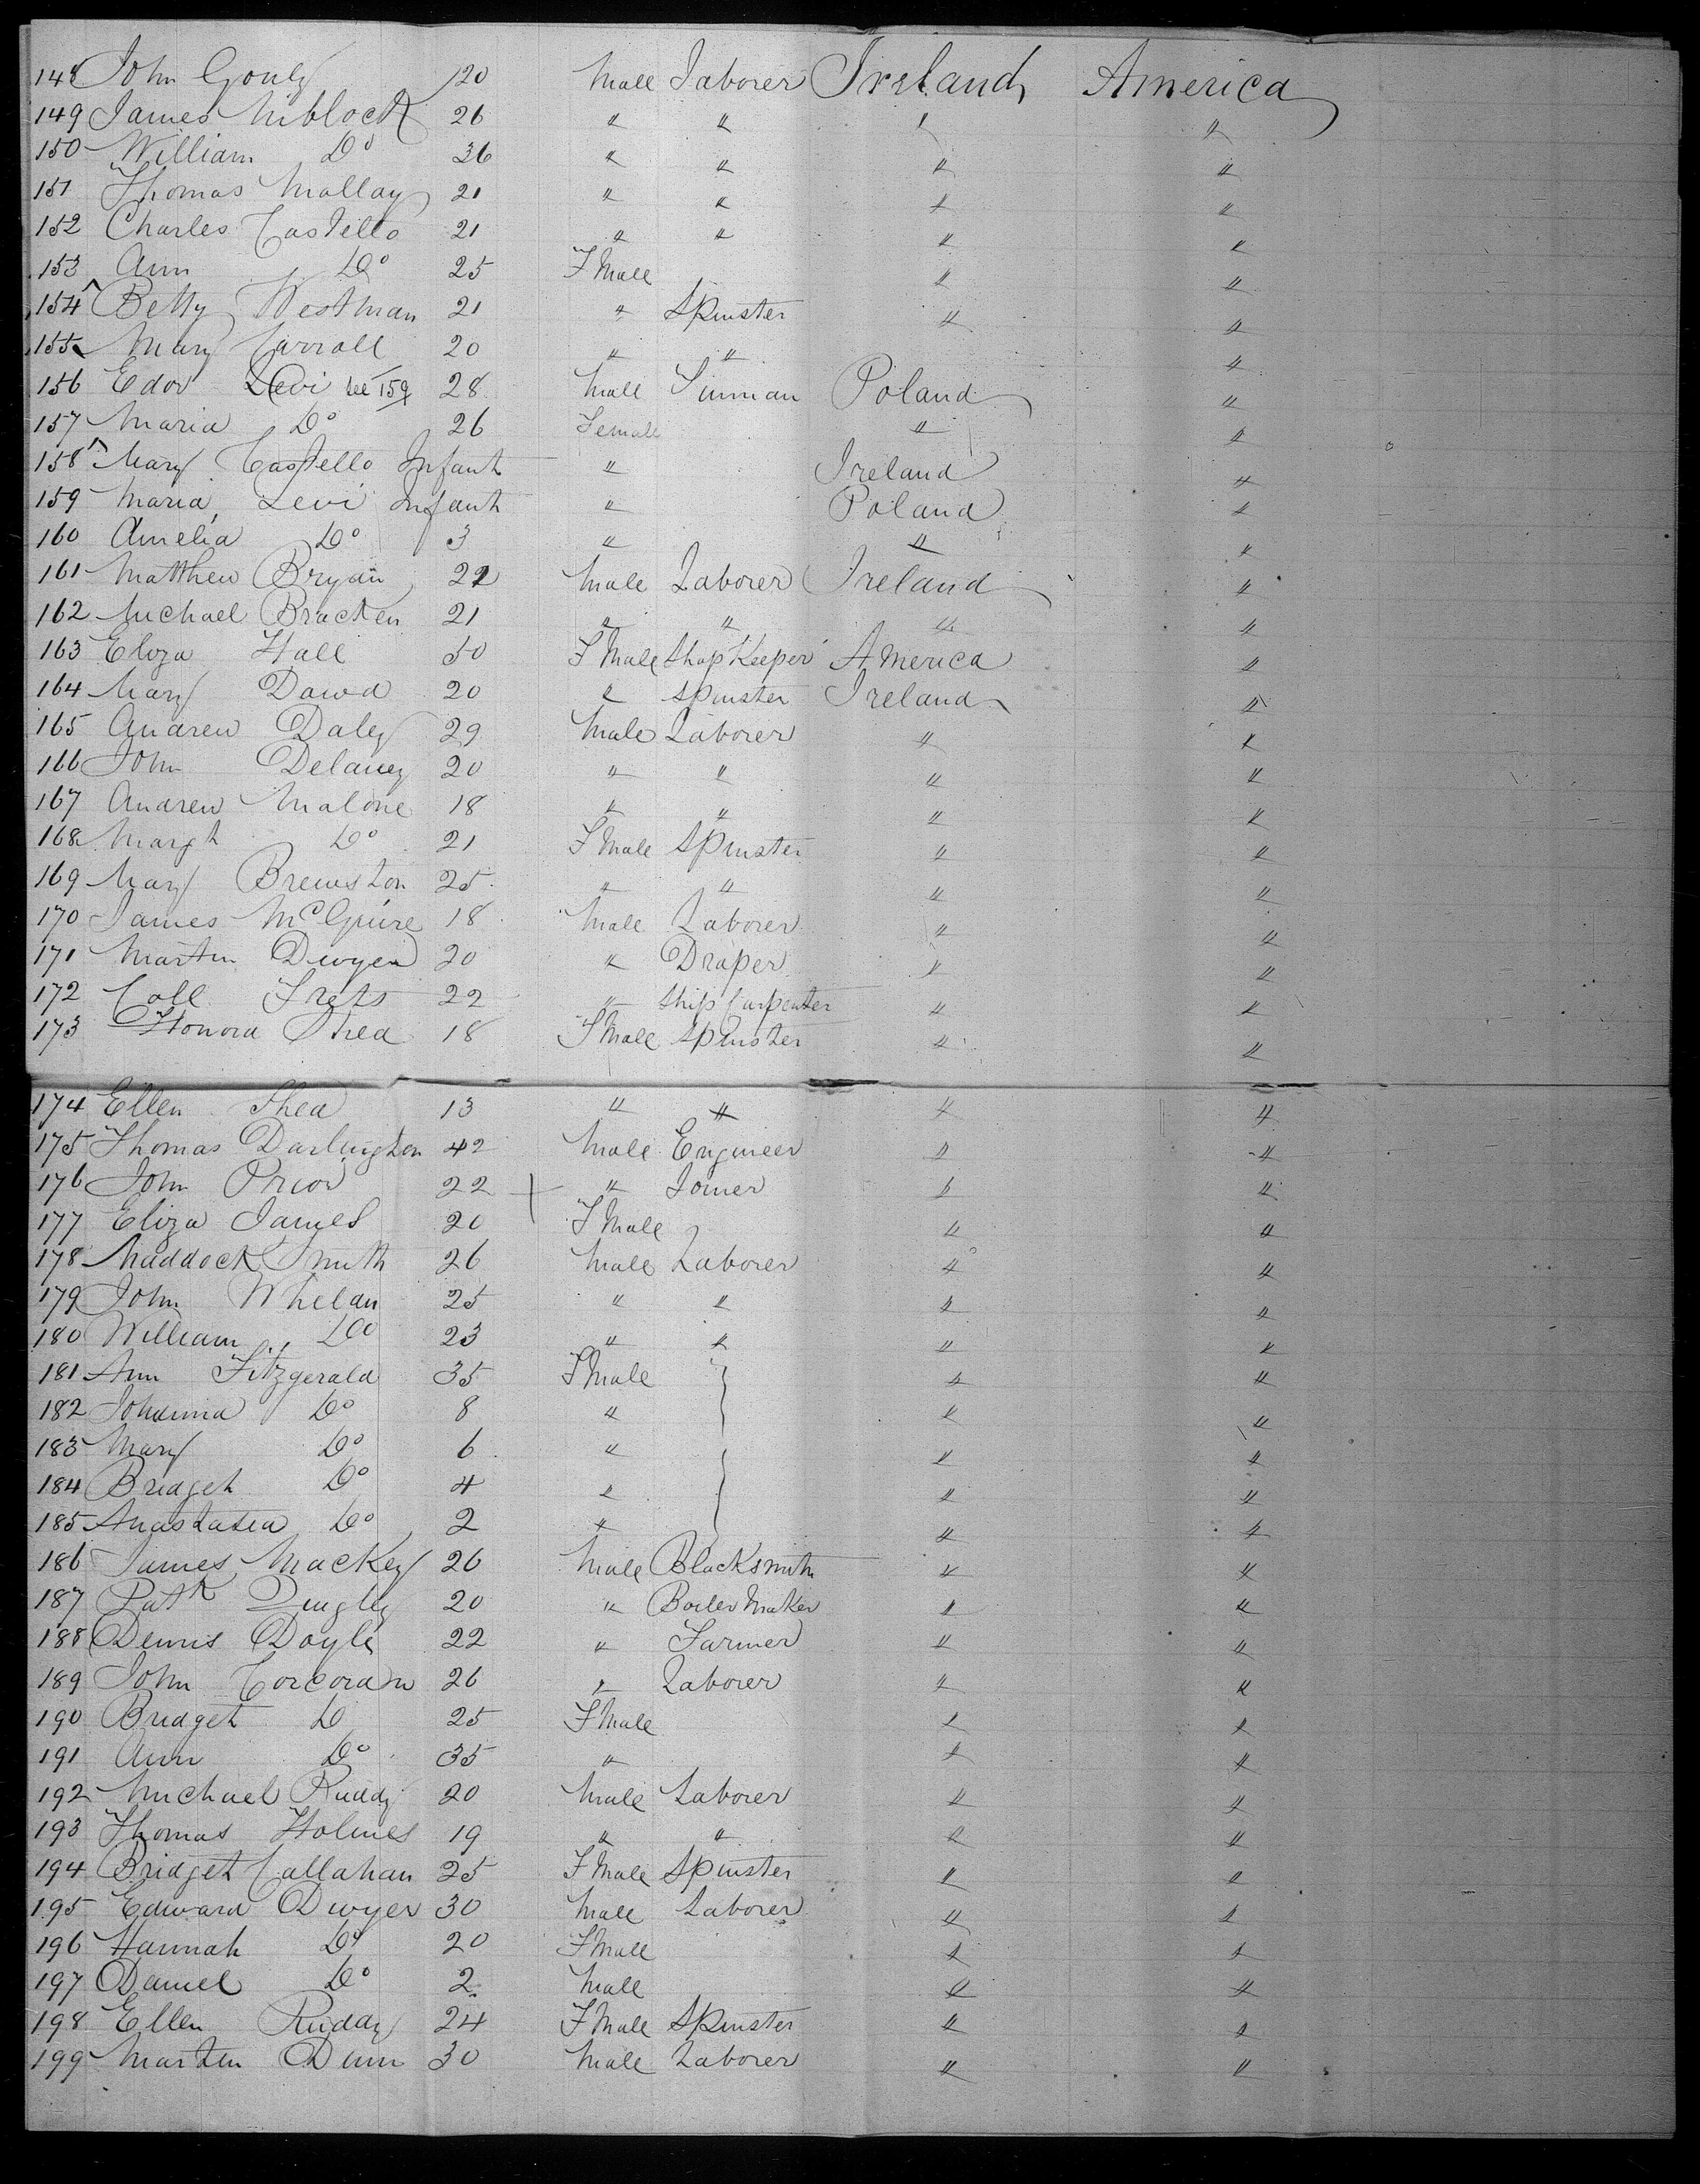 148 John Gouly 20 Male Laborer Ireland America
149 James Niblock 26 " " " "
150 William Do 36 " " " "
151 Thomas Mallay 21 " " " "
152 Charles Costello 21 " " " "
153 Ann Do 25 FMale " "
154 Betty Westman 21 " Spinster " "
155 Mary Carroll 20 " " "
156 Edor Levi see 159 28 Male Poland "
157 Maria Do 26 Female " "
158 Mary Costello Infant " Ireland "
159 Maria Levi Infant " Poland "
160 Amelia Do 3 " " "
161 Matthew Bryan 22 Male Laborer Ireland "
162 Michael Bracken 21 " " " "
163 Eliza Hall 50 FMale Shop Keeper America "
164 Mary Dowd 20 " Spinster Ireland "
165 Andrew Daley 29 Male Laborer " "
166 John Delaney 20 " " " "
167 Andrew Malone 18 " " " "
168 Margt Do 21 FMale Spinster " "
169 Mary Brewston 25 " " " "
170 James McGuire 18 Male Laborer " "
171 Martin Dwyer 20 " Draper " "
172 Coll 22 " Ship Carpenter " "
173 Honora Shea 18 FMale Spinster " "
174 Ellen Shea 13 " " " "
175 Thomas Darlington 42 Male Engineer " "
176 John Prior 22 " Joiner " "
177 Eliza James 20 FMale " "
178 Maddock Smith 26 Male Laborer " "
179 John Whelan 25 " " " "
180 William Do 23 " " " "
181 Ann Fitzgerald 35 FMale " "
182 Johanna Do 8 " " "
183 Mary Do 6 " " "
184 Bridget Do 4 " " "
185 Anastatia Do 2 " " "
186 James Mackey 26 Male Blacksmith " "
187 Patk Quigley 20 " Boiler Maker " "
188 Dennis Doyle 22 " Farmer " "
189 John Corcoran 26 " Laborer " "
190 Bridget D 25 FMale " "
191 Ann Do 35 " " "
192 Michael Ruddy 20 Male Laborer " "
193 Thomas Holmes 19 " " " "
194 Bridget Callahan 25 FMale Spinster " "
195 Edward Dwyer 30 Male Laborer " "
196 Hannah Do 20 FMale " "
197 Daniel Do 2 Male " "
198 Ellen Ruddy 24 FMale Spinster " "
199 Marten Dunn 30 Male Laborer " "